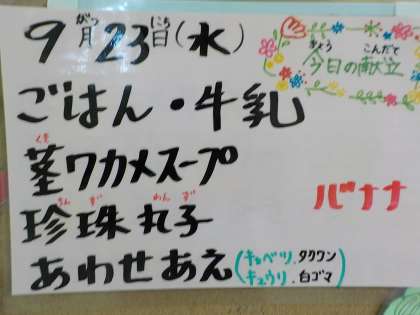 9月23日(水)
がつ にち
きょう こんだて
今日の献立
ごはん・牛乳
くき
茎ワカメスープ
ちんずわんず
珍珠丸子
バナナ
あわせあえ(キャベツ、タクワン
キュウリ、白ゴマ)